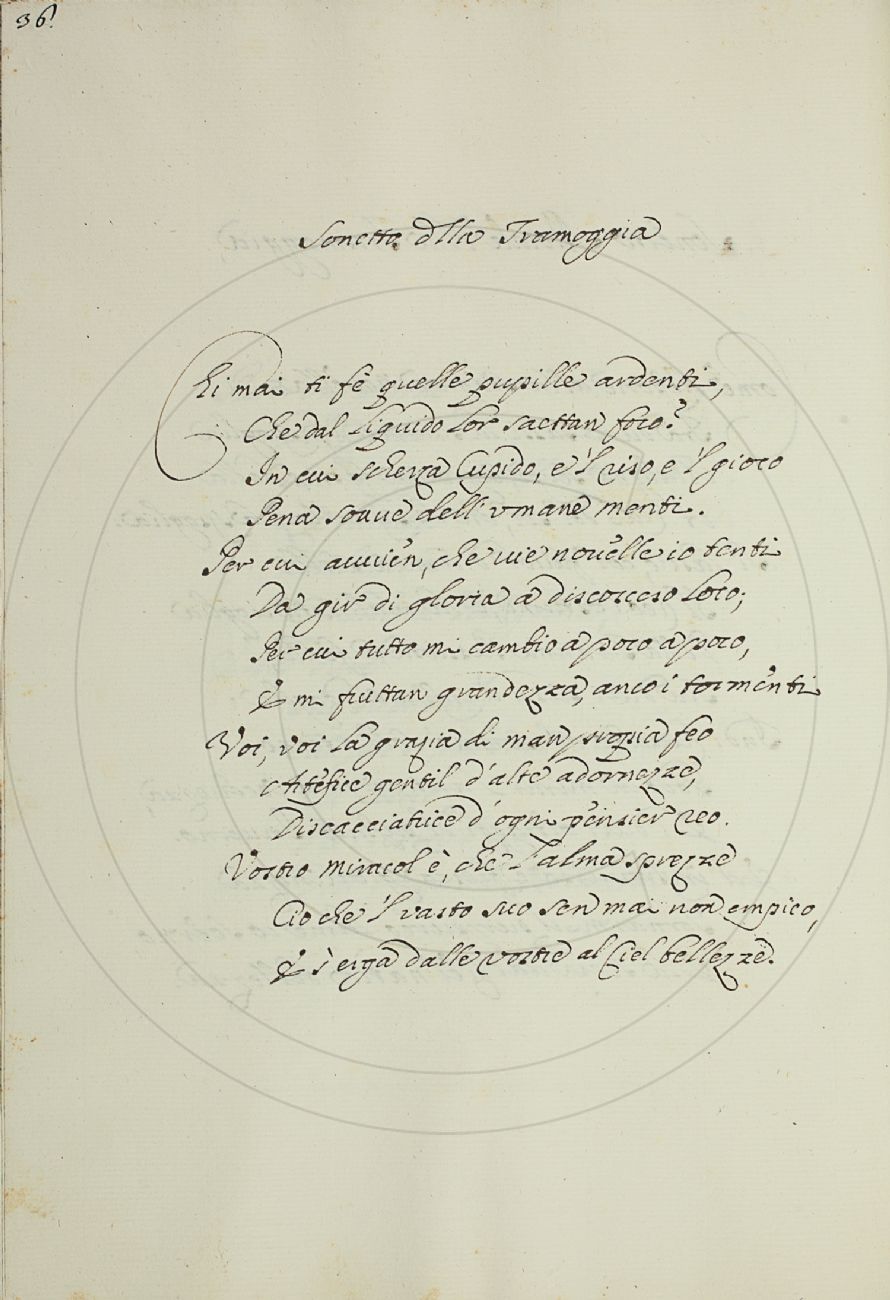 36.
Sonetto dlla Tramoggia
Chi mai ti fè quelle pupille ardenti,
Che dal liquido lor saettan foco?
In cui scherza Cupido, e 'l riso, e 'l gioco
Pena soave dell' umane menti.
Per cui avvien, che vie novelle io tenti
Da gir di gloria a discosceso loco;
Per cui tutto mi cambio a poco a poco,
E mi fruttan grandezza, anco i tormenti
Voi, voi la grazia di man propria feo
Artefice gentil d'alte adornezze,
Discacciatrice d' ogni pensier reo.
Vostro miracol è, che l'alma sprezze
Cio che 'l vasto suo sen mai non empieo,
E s' erga dalle vostre al Ciel bellezze.